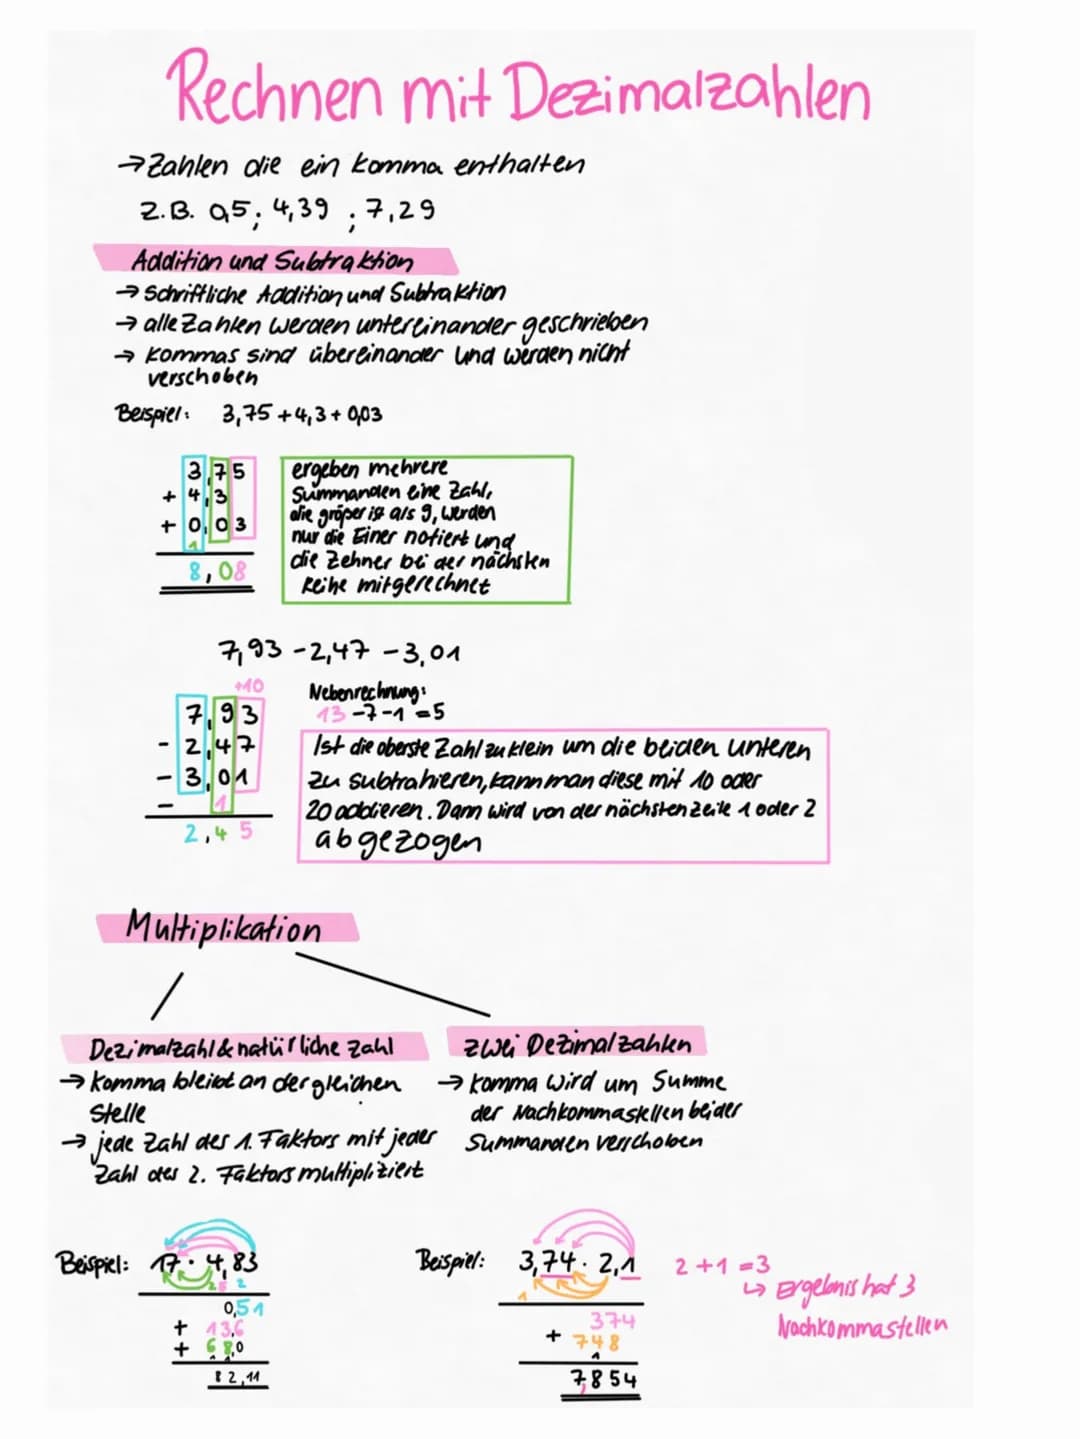 Rechnen mit Dezimalzahlen
→ Zahlen die ein Komma enthalten
z.B. 0,5; 4,39 ; 7,29
Addition und Subtraktion
→ schriftliche Addition und Subtraktion
→ alle Zahlen werden untereinander geschrieben
→ Kommas sind übereinander und werden nicht
verschoben
Beispiel: 3,75 + 4,3 + 0,03
3,75
+ 4,3
+ 0,03
1
8,08
ergeben mehrere
Summanden eine Zahl,
die größer ist als 9, werden
nur die Einer notiert und
die Zehner bei der nächsten
Reihe mitgerechnet
7,93 - 2,47 - 3,01
+10
7,93
- 2,47
- 3,01
- 1
2,45
Nebenrechnung:
13 - 7 - 1 = 5
Ist die oberste Zahl zu klein um die beiden unteren
zu subtrahieren, kann man diese mit 10 oder
20 addieren. Dann wird von der nächsten Zeile 1 oder 2
abgezogen
Multiplikation
Dezimalzahl & natürliche Zahl
→ Komma bleibt an der gleichen
Stelle
→ jede Zahl des 1. Faktors mit jeder
Zahl des 2. Faktors multipliziert
zwei Dezimalzahlen
→ Komma wird um Summe
der Nachkommastellen beider
Summanden verschoben
Beispiel: 17 · 4,83
2 5 2
0,51
+ 13,6
+ 68,0
1 1
82,11
Beispiel: 3,74 · 2,1
1
374
+ 748
1
7,854
2 + 1 = 3
↳ Ergebnis hat 3
Nachkommastellen